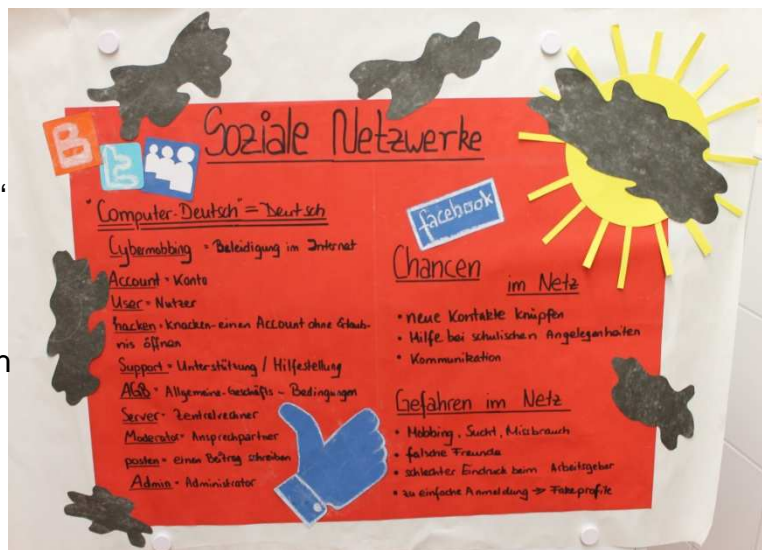 Soziale Netzwerke
B
t
"Computer-Deutsch" = Deutsch
Cybermobbing = Beleidigung im Internet
Account = Konto
User = Nutzer
hacken = Knacken-einen Account ohne Erlaub-
nis öffnen
Support = Unterstützung / Hilfestellung
AGB = Allgemeine-Geschäfts-Bedingungen
Server = Zentralrechner
Moderator = Ansprechpartner
posten = einen Beitrag schreiben
Admin = Administrator
facebook
Chancen
im Netz
• neue Kontakte knüpfen
• Hilfe bei schulischen Angelegenheiten
• Kommunikation
Gefahren im Netz
• Mobbing, Sucht, Missbrauch
• falsche Freunde
• schlechter Eindruck beim Arbeitsgeber
• zu einfache Anmeldung → Fakeprofile
“
n